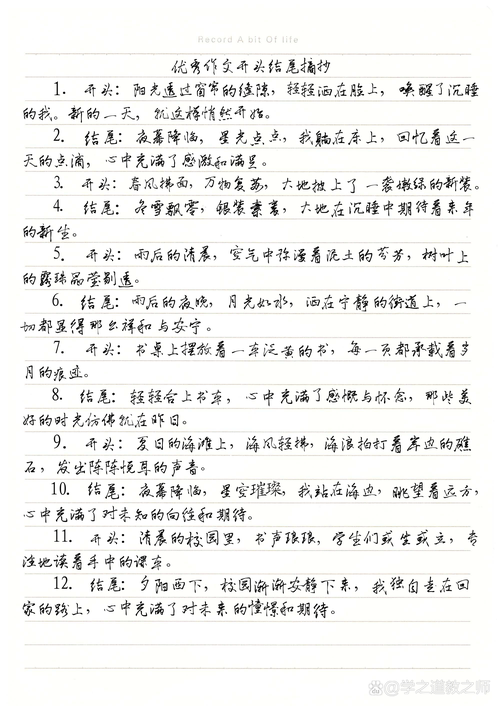 Record A bit Of life
优秀作文开头结尾摘抄
1. 开头：阳光透过窗帘的缝隙，轻轻洒在脸上，唤醒了沉睡
的我。新的一天，就这样悄然开始。
2. 结尾：夜幕降临，星光点点，我躺在床上，回忆着这一
天的点滴，心中充满了感激和满足。
3. 开头：春风拂面，万物复苏，大地披上了一袭嫩绿的新装。
4. 结尾：冬雪飘零，银装素裹，大地在沉睡中期待着来年
的新生。
5. 开头：雨后的清晨，空气中弥漫着泥土的芬芳，树叶上
的露珠晶莹剔透。
6. 结尾：雨后的夜晚，月光如水，洒在宁静的街道上，一
切都显得那么祥和与安宁。
7. 开头：书桌上摆放着一本泛黄的书，每一页都承载着岁
月的痕迹。
8. 结尾：轻轻合上书本，心中充满了感慨与怀念，那些美
好的时光仿佛就在昨日。
9. 开头：夏日的海滩上，海风轻拂，海浪拍打着岸边的礁
石，发出阵阵悦耳的声音。
10. 结尾：夜幕降临，星空璀璨，我站在海边，眺望着远方，
心中充满了对未知的向往和期待。
11. 开头：清晨的校园里，书声琅琅，学生们或坐或立，专
注地读着手中的课本。
12. 结尾：夕阳西下，校园渐渐安静下来，我独自走在回
家的路上，心中充满了对未来的憧憬和期待。
@学之道教之师